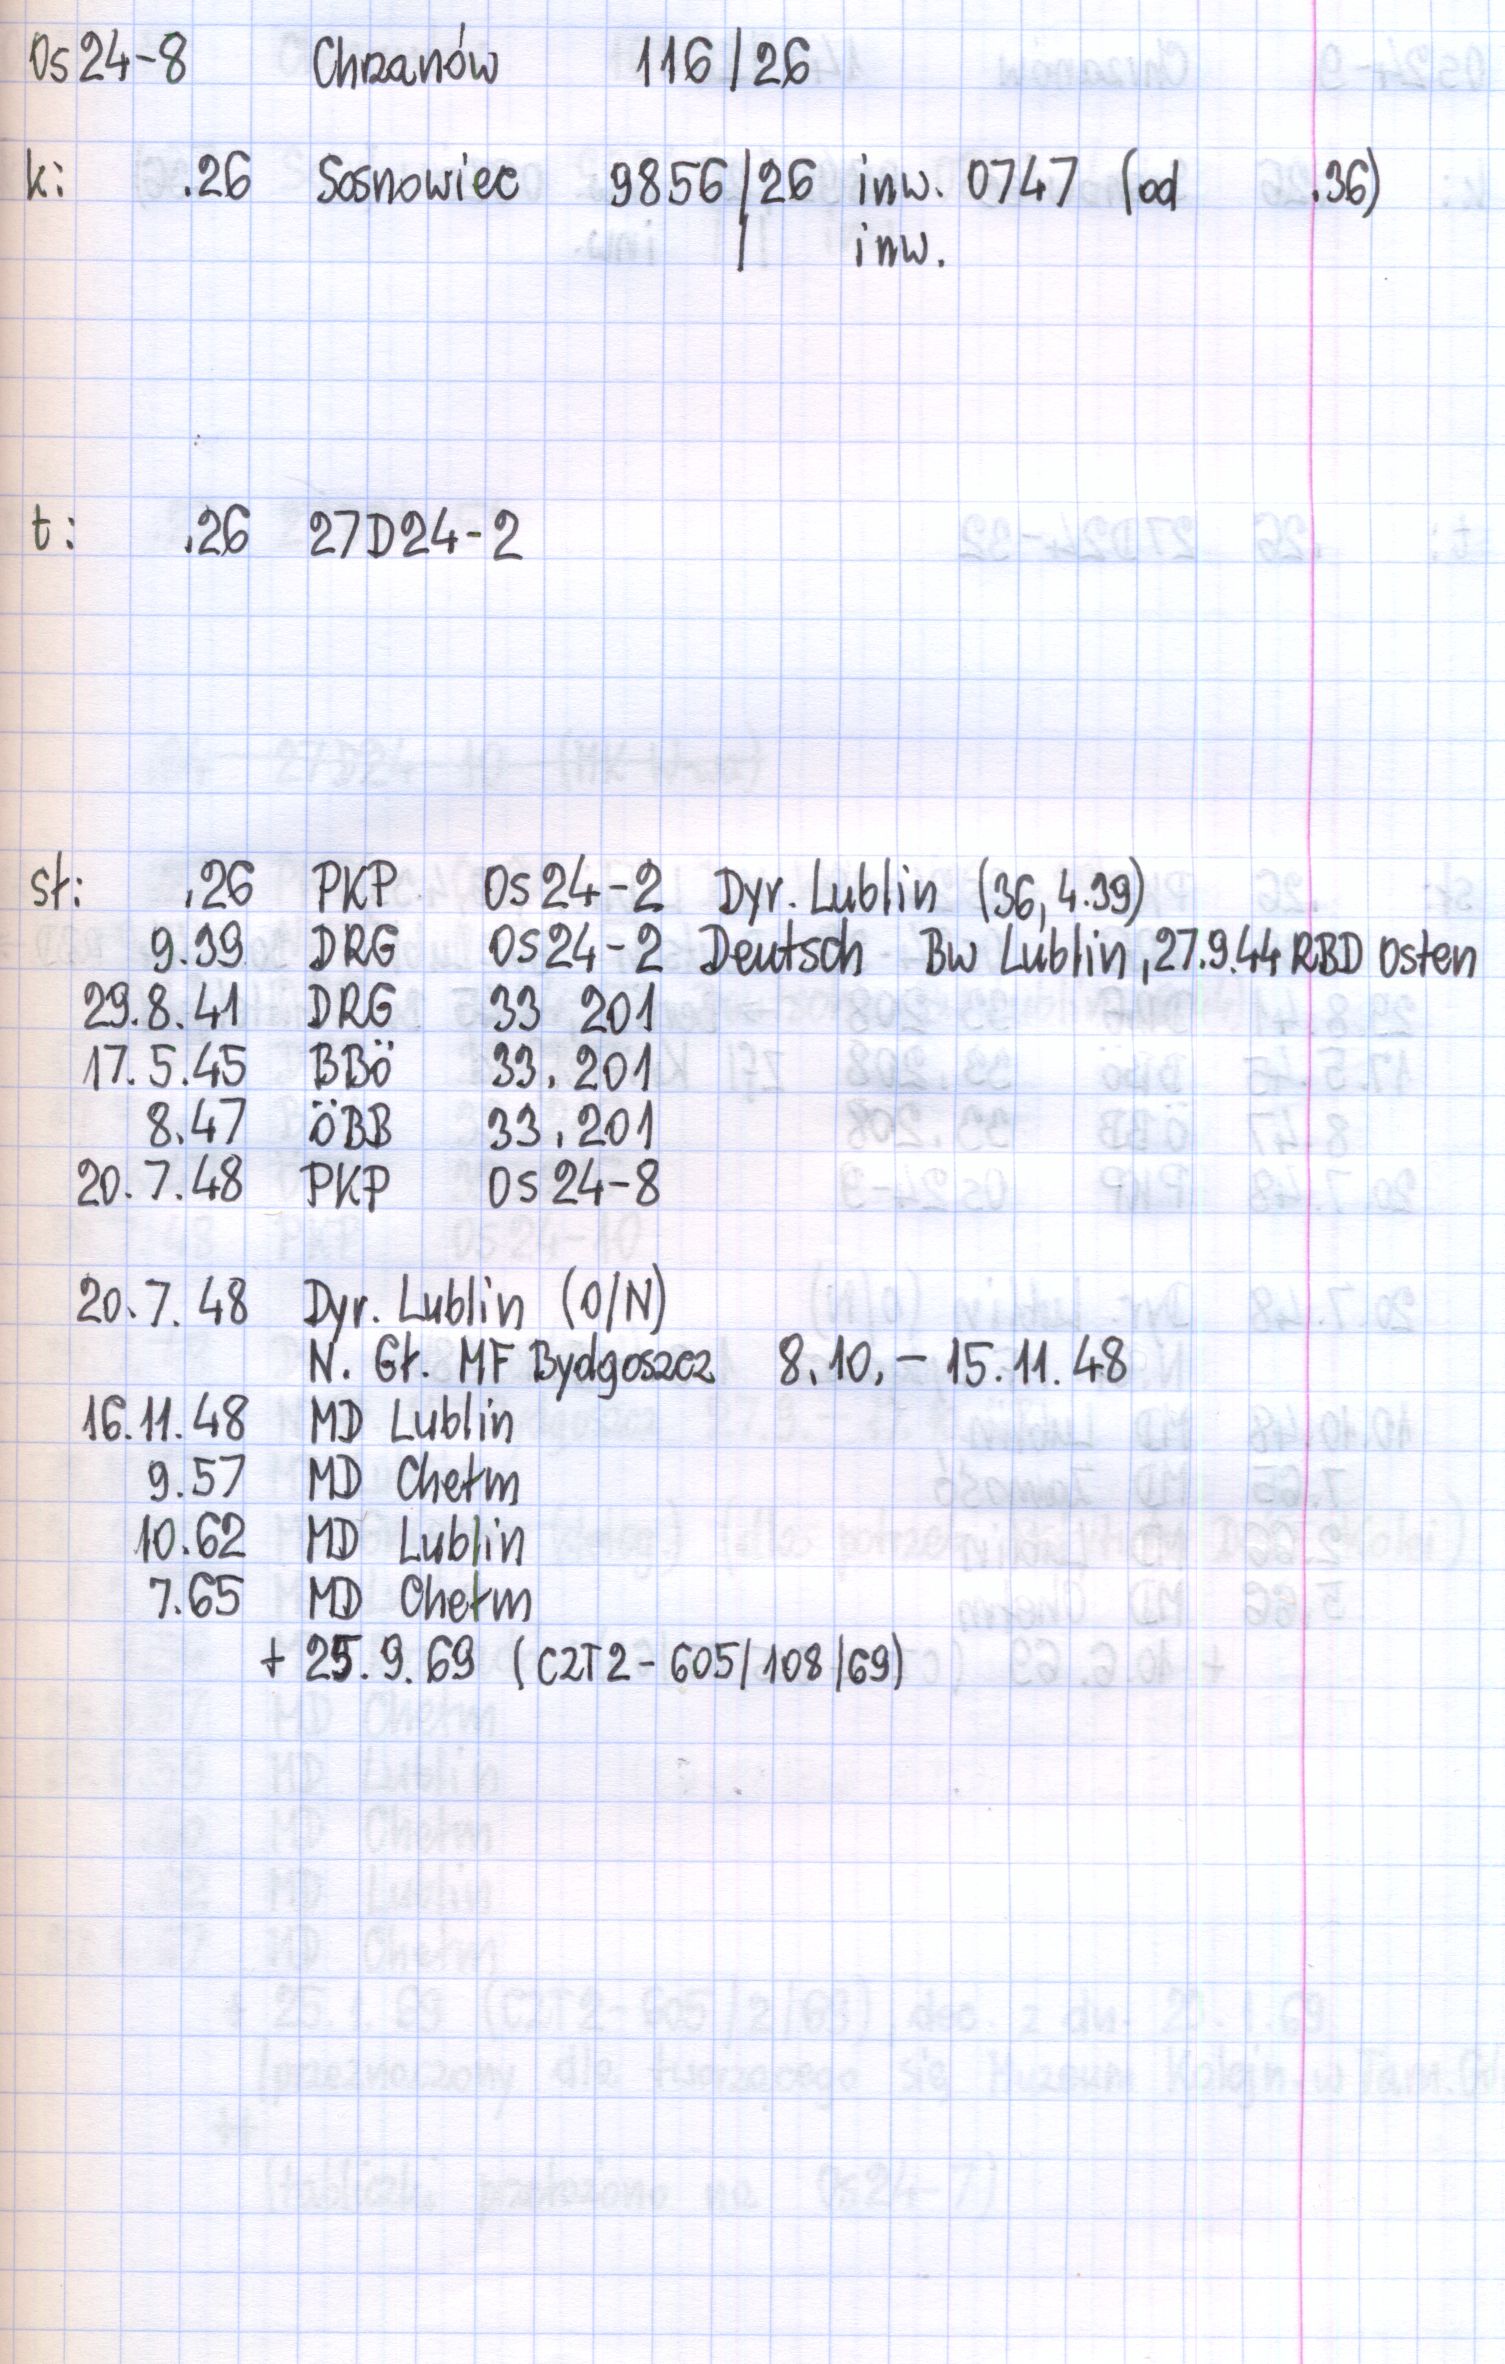 Os24-8 Chrzanów 116/26
k: .26 Sosnowiec 9856/26 inw. 0747 (od .36)
/ inw.
t: .26 27D24-2
sł: .26 PKP Os24-2 Dyr. Lublin (36, 4.39)
9.39 DRG Os24-2 Deutsch Bw Lublin, 27.9.44 RBD Osten
29.8.41 DRG 33 201
17.5.45 BBÖ 33.201
8.47 ÖBB 33.201
20.7.48 PKP Os24-8
20.7.48 Dyr. Lublin (O/N)
N. Gł. MF Bydgoszcz 8.10. - 15.11.48
16.11.48 MD Lublin
9.57 MD Chełm
10.62 MD Lublin
7.65 MD Chełm
+ 25.9.69 (CZT2-605/108/69)